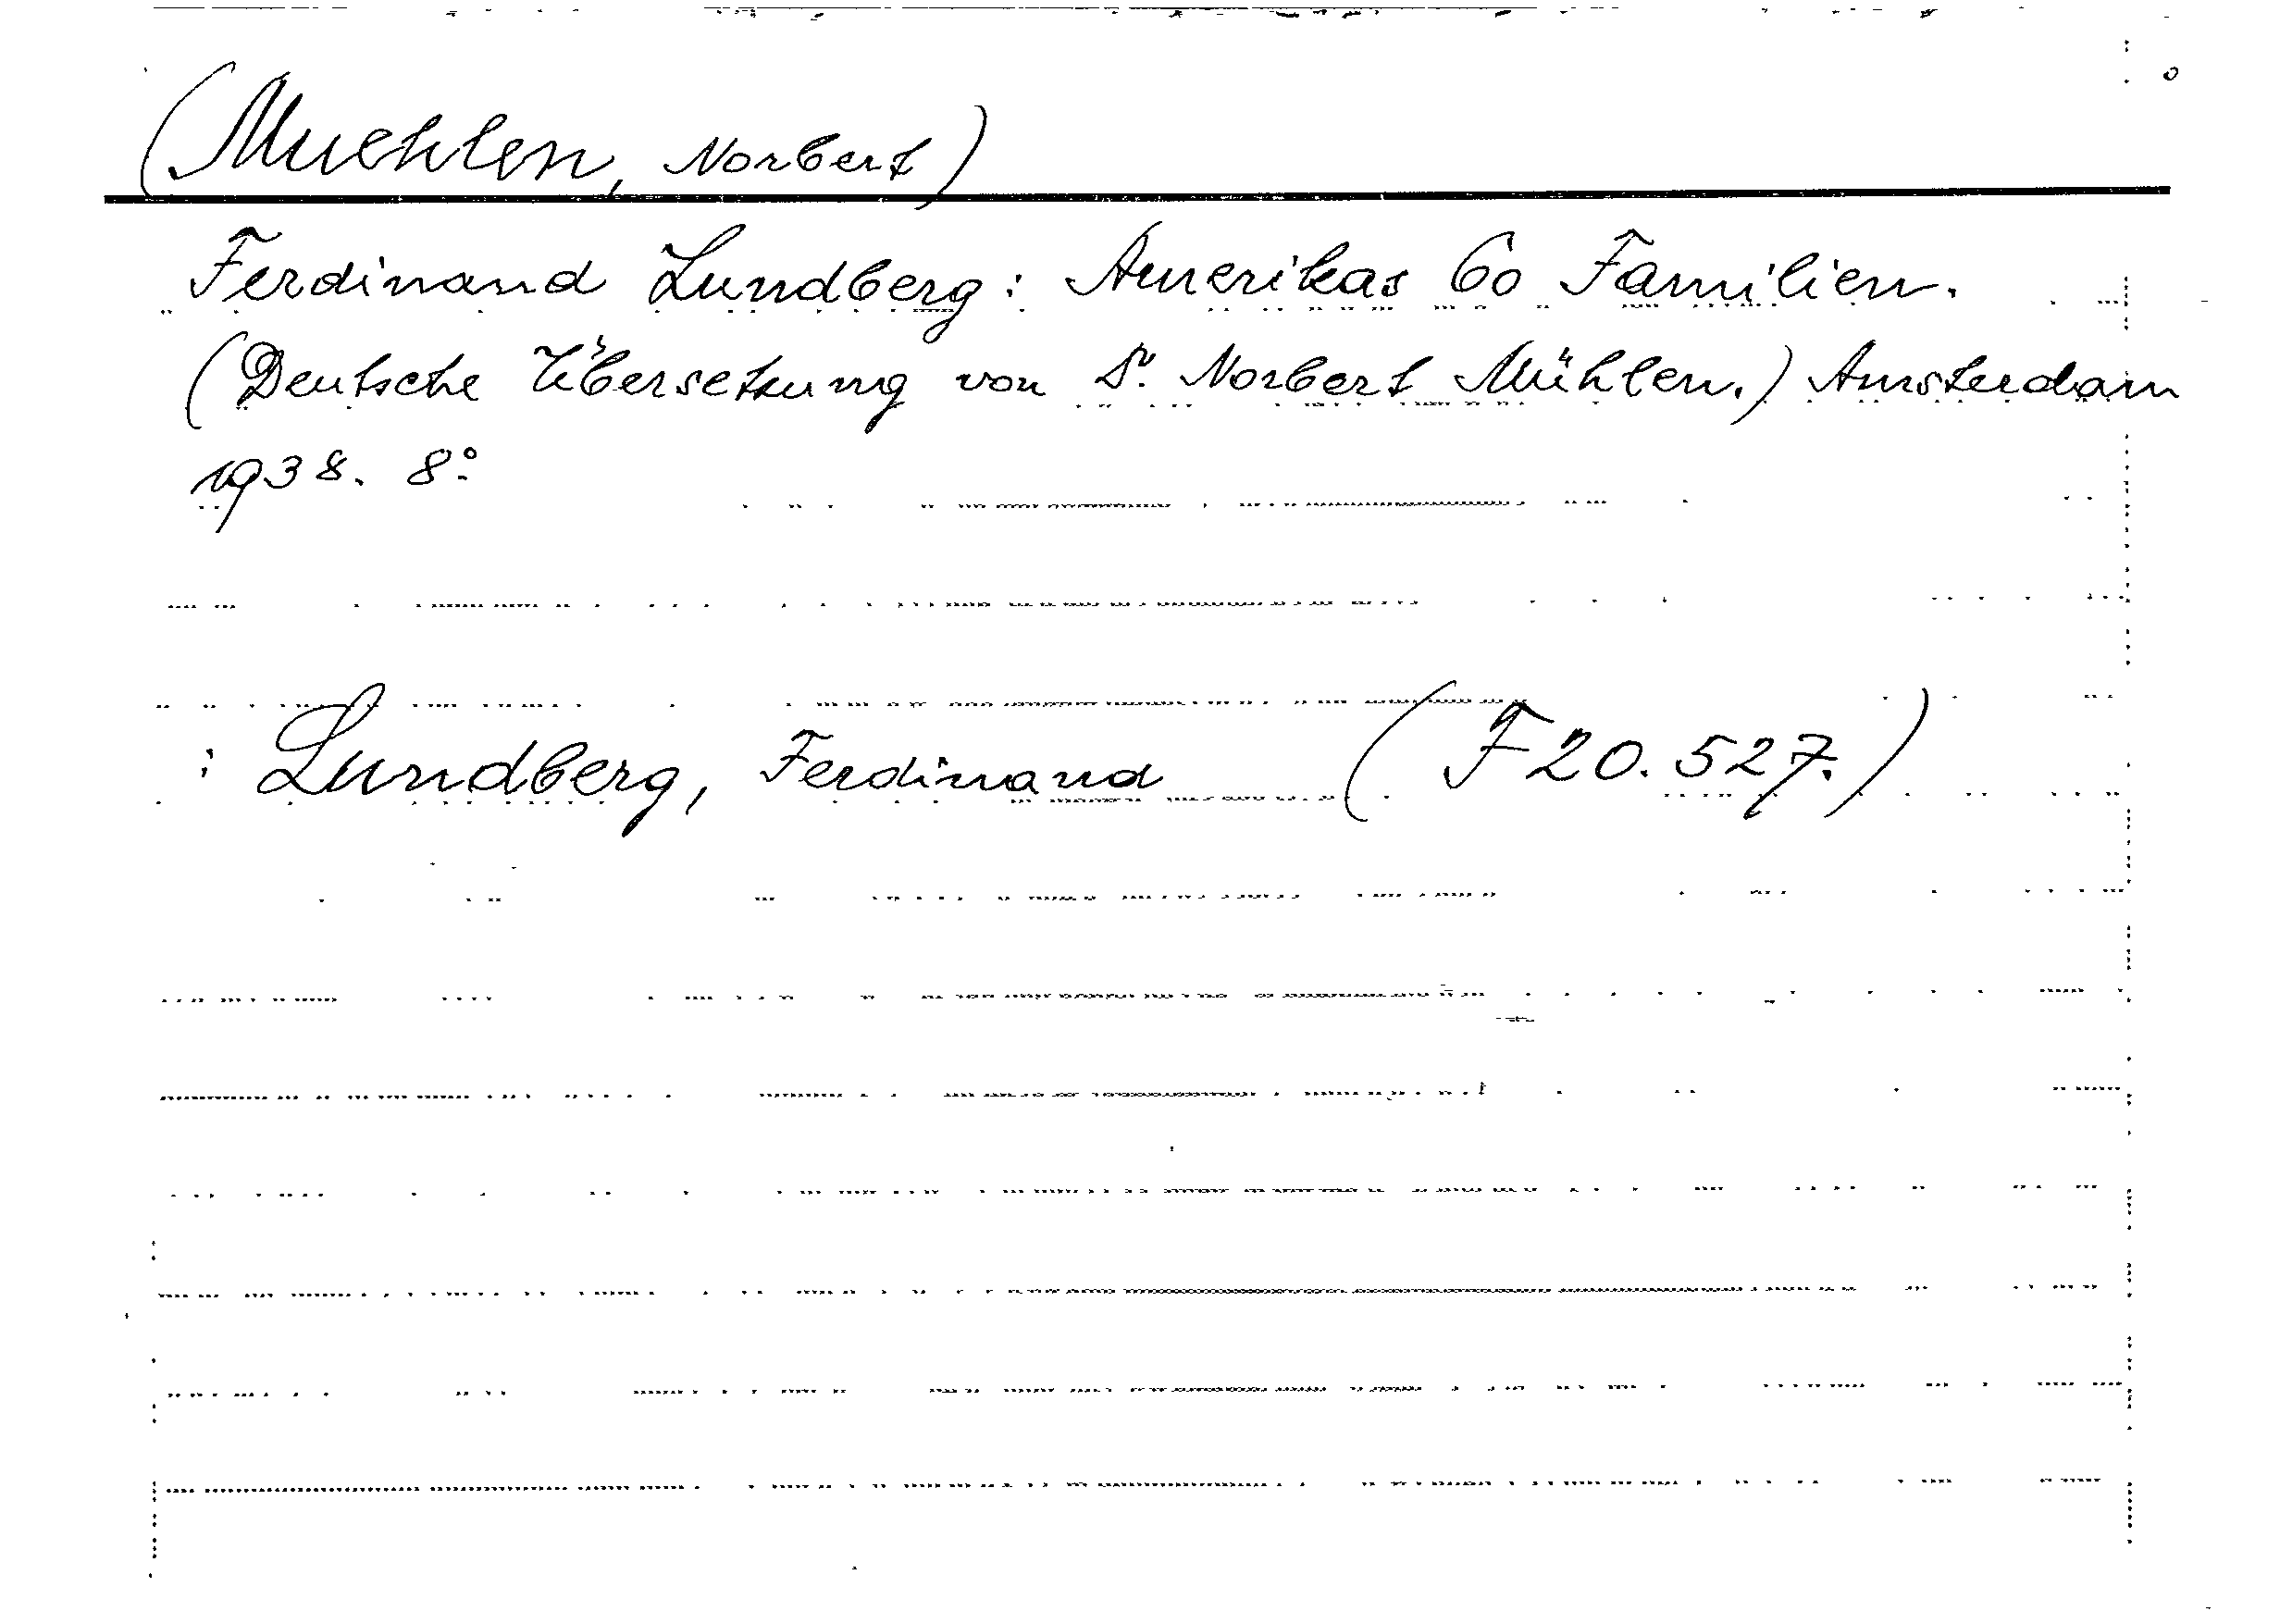 (Muehlen, Norbert)
Ferdinand Lundberg: Amerikas 60 Familien.
(Deutsche Übersetzung von Dr. Norbert Mühlen.) Amsterdam
1938. 8°.
: Lundberg, Ferdinand (F 20.527.)